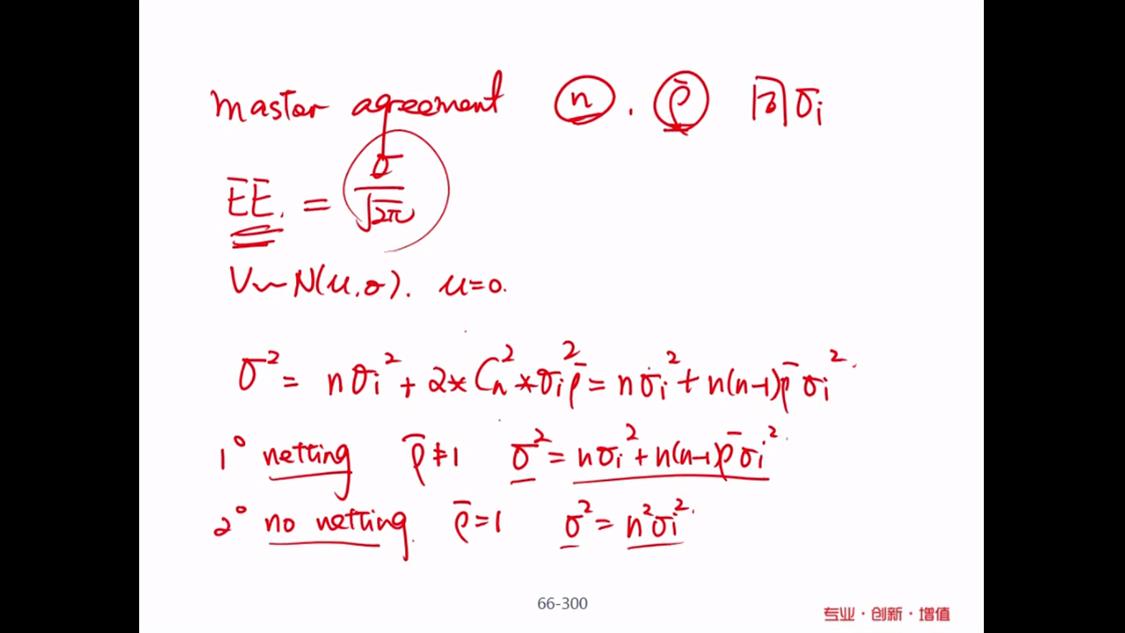 master agreement n . ρ̄ 同σi
EE. = σ/√2π
V~N(μ.σ). μ=0.
σ² = nσi² + 2*Cn²*σi²ρ̄ = nσi² + n(n-1)ρ̄σi².
1° netting ρ̄≠1 σ² = nσi² + n(n-1)ρ̄σi².
2° no netting. ρ̄=1 σ² = n²σi².
66-300
专业·创新·增值